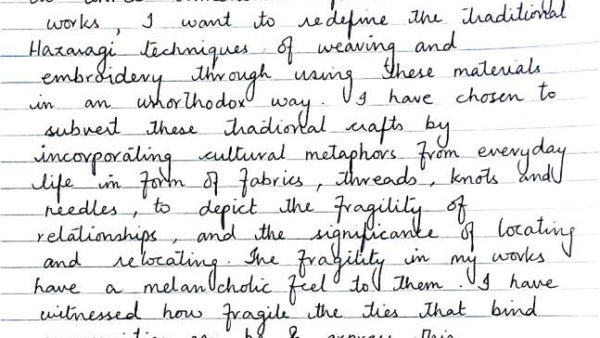 works, I want to redefine the traditional
Hazaragi techniques of weaving and
embroidery through using these materials
in an unorthodox way. I have chosen to
subvert these tradional crafts by
incorporating cultural metaphors from everyday
life in form of fabrics, threads, knots and
needles, to depict the fragility of
relationships, and the significance of locating
and relocating. The fragility in my works
have a melancholic feel to them. I have
witnessed how fragile the ties that bind